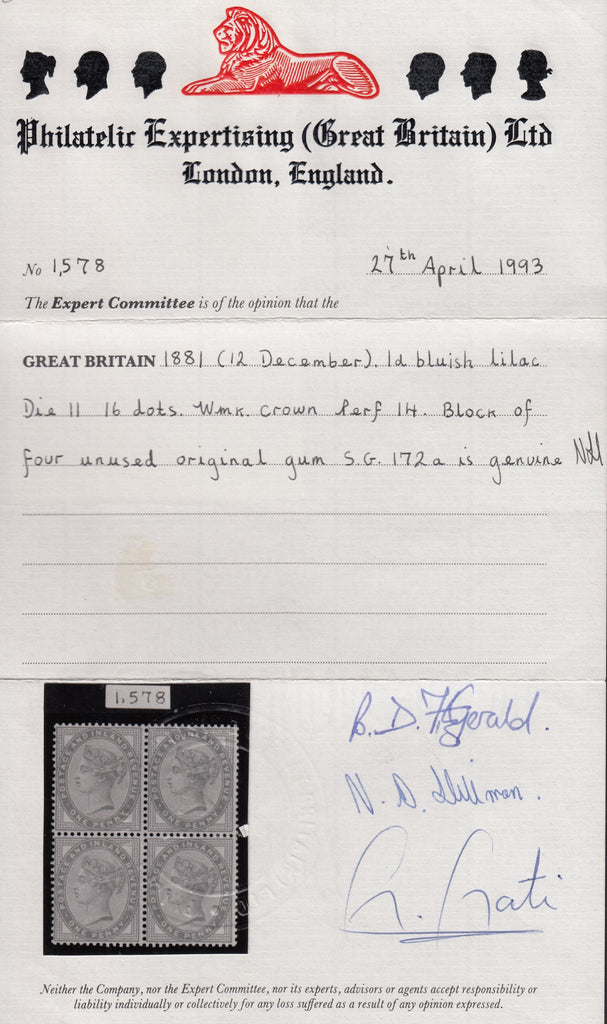 Philatelic Expertising (Great Britain) Ltd
London, England.
No 1,578
27th April 1993
The Expert Committee is of the opinion that the
GREAT BRITAIN 1881 (12 December). 1d bluish lilac
Die II 16 dots. Wmk. Crown Perf 14. Block of
four unused original gum S.G. 172a is genuine
1,578
POSTAGE AND INLAND REVENUE
ONE PENNY
POSTAGE AND INLAND REVENUE
ONE PENNY
POSTAGE AND INLAND REVENUE
ONE PENNY
POSTAGE AND INLAND REVENUE
ONE PENNY
B. D. Fitzgerald.
N. D. Hillman.
G. Grati
Neither the Company, nor the Expert Committee, nor its experts, advisors or agents accept responsibility or
liability individually or collectively for any loss suffered as a result of any opinion expressed.